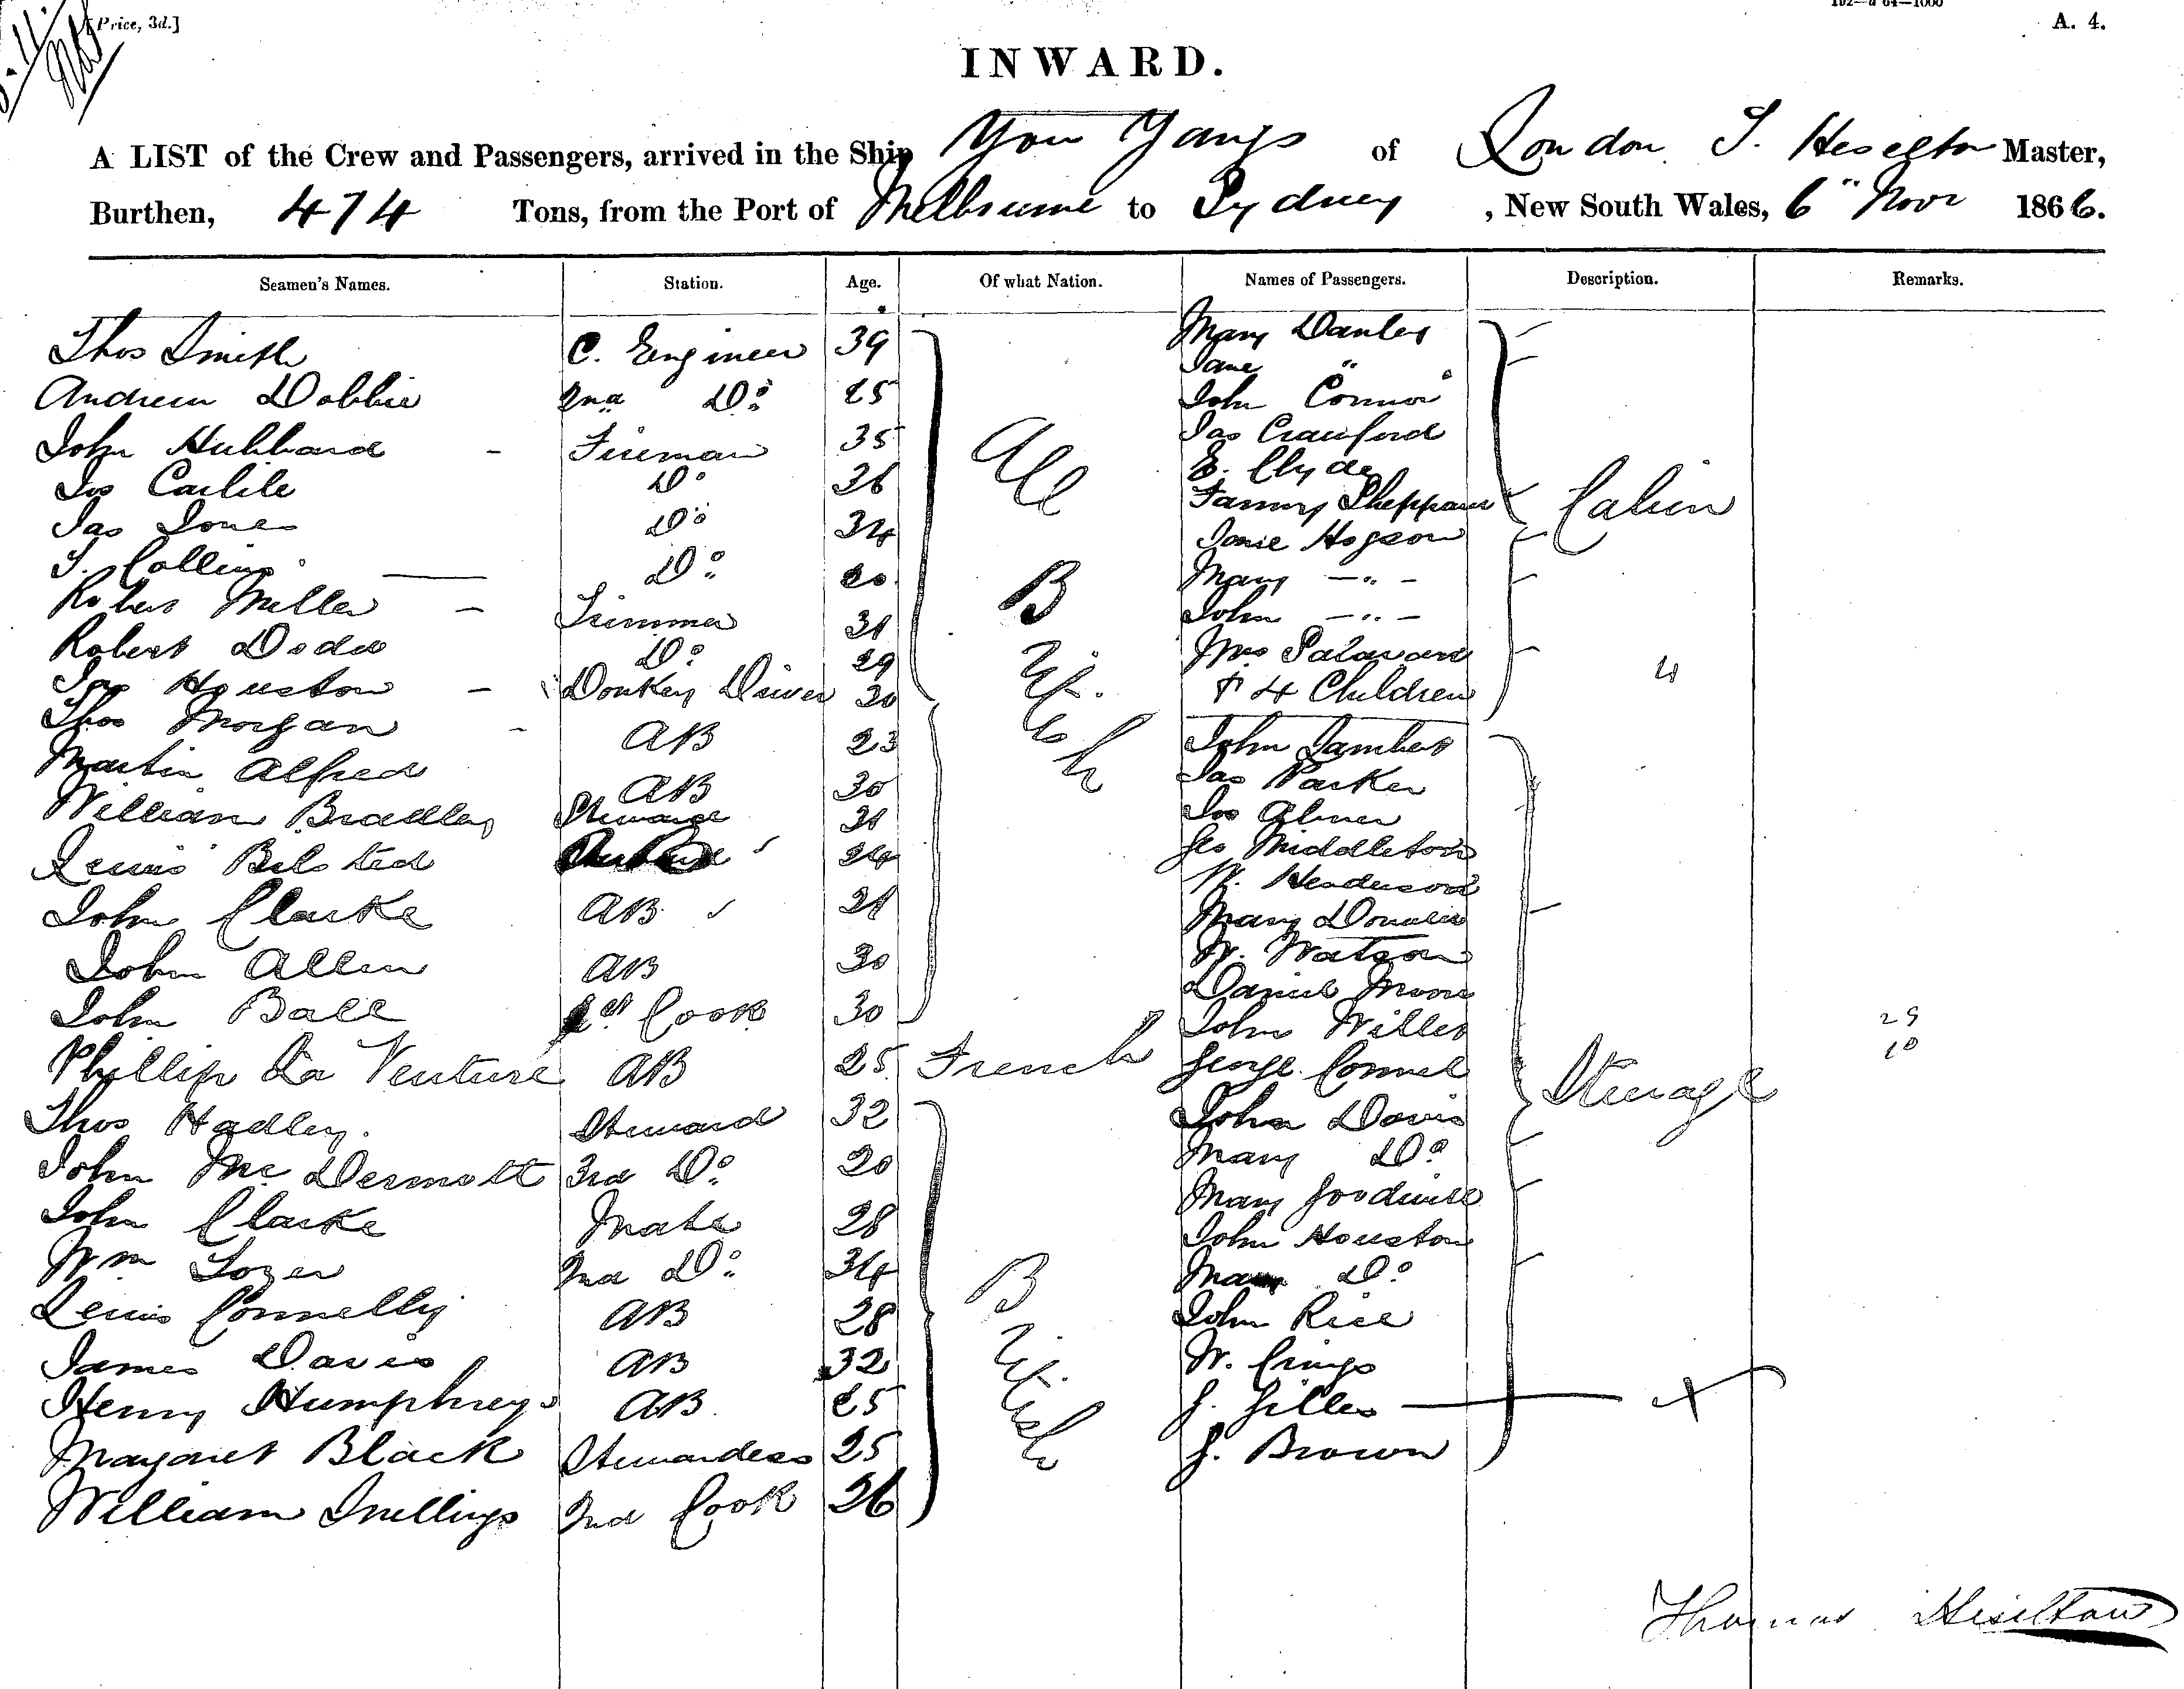 [Price, 3d.]
192—a 64—1000
A. 4.
INWARD.
A LIST of the Crew and Passengers, arrived in the Ship You Yangs of London T. Heselton Master,
Burthen, 474 Tons, from the Port of Melbourne to Sydney, New South Wales, 6" Novr 1866.
Seamen's Names. Station. Age. Of what Nation. Names of Passengers. Description. Remarks.
Thos Smith C. Engineer 39
Andrew Dobbie 2nd Do 25
John Hubbard - Fireman 35
Jos Carlile Do 36
Jas Jones Do 34
T. Collins Do 20
Robert Miller - Trimmer 31
Robert Dodds Do 29
Houston - Donkey Driver 30
Thos Morgan - AB 23
Martin Alfred AB 30
William Bradley Steward 31
Lewis Belsted 24
John Clarke AB 21
John Allen AB 30
John Ball 1st Cook 30
All British
Phillip La Venture AB 25 French
Thos Hadley. Steward 32
John McDermott 3rd Do 20
John Clarke Mate 28
Wm Lozer 2nd Do 34
Lewis Connelly AB 28
James Davis AB 32
Henry Humphreys AB 25
Margaret Black Stewardess 25
William Snellings 2nd Cook 26
British
Mary Danley
Jane "
John Connor
Jas Crawford
E. Clyde
Fanny Sheppard
Janie Hogson
Mary — " —
John — " —
Mrs
& 4 Children 4
Cabin
John Lambert
Jas Parker
Jos Almer
Geo Middleton
W. Henderson
Mary Donald
W. Watson
Daniel Moore
John Willes
George Connel
John Davis
Mary Do
Mary Goodwill
John Houston
Mary Do
John Rice
W. Crings
J. Gilles
J. Brown
Steerage
29
10
Thomas Heselton